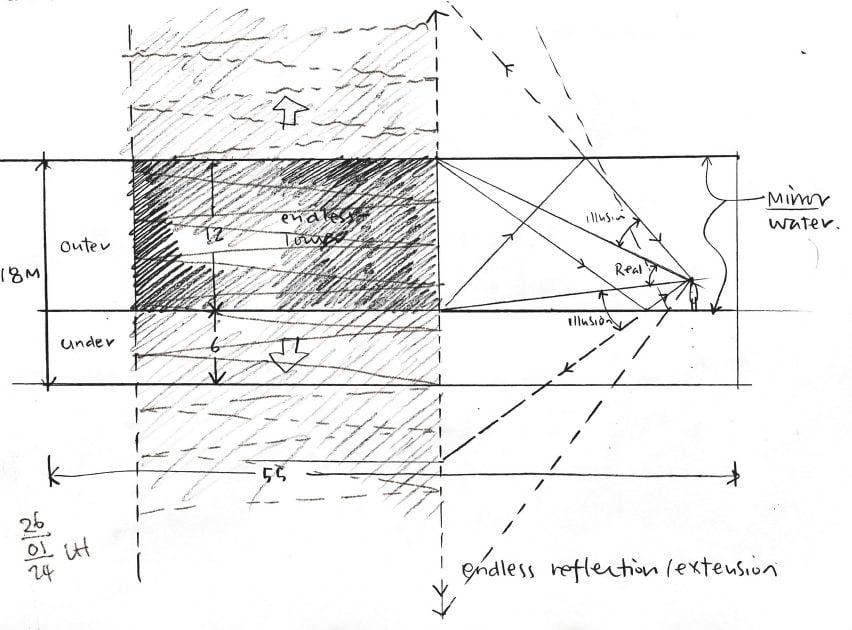 endless
12
Tower
outer
18M
under
6
illusion
Real
illusion
Mirror
water.
55
26
01
24
LH
endless reflection/extension